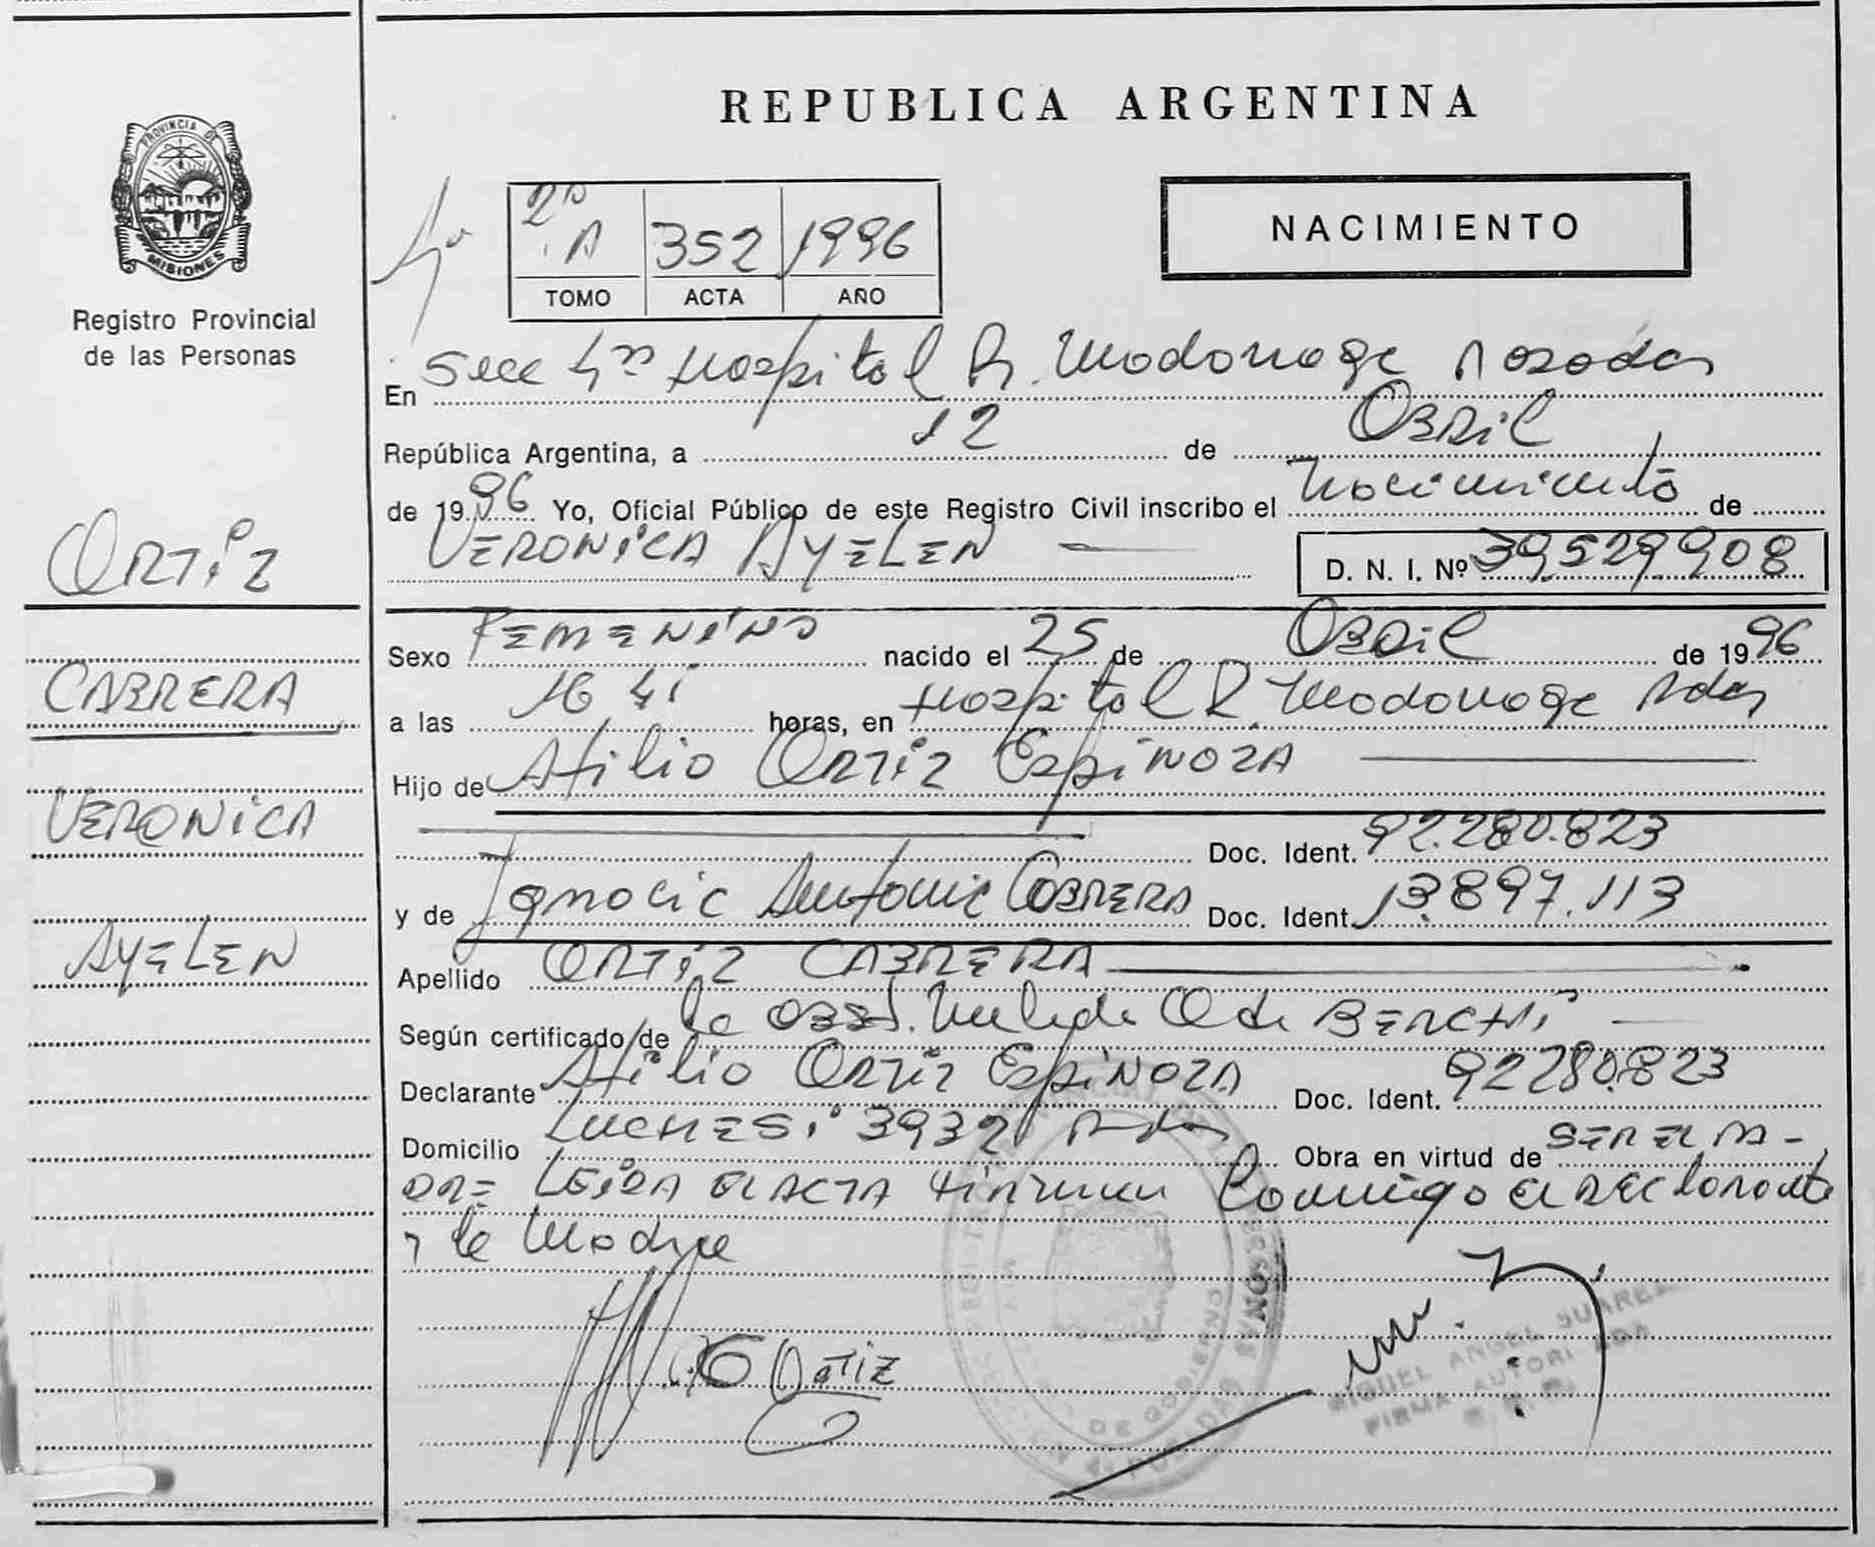 PROVINCIA DE
MISIONES
Registro Provincial
de las Personas
ORTiZ
CABRERA
VERONiCA
AYELEN
REPUBLICA ARGENTINA
NACIMIENTO
352 1996
TOMO ACTA AÑO
En Secc 4ta Hospital R. Madariaga Posadas
República Argentina, a 12 de Abril
de 1996 Yo, Oficial Público de este Registro Civil inscribo el nacimiento de
VERONiCA AYELEN D. N. I. Nº 39.529.908
Sexo FEMENiNO nacido el 25 de Abril de 1996
a las 16 horas, en Hospital R. Madariaga Pdas
Hijo de Atilio ORTiZ ESPiNOZA
Doc. Ident. 92.280.823
y de Ignacia Antonia CABRERA Doc. Ident. 13.897.113
Apellido ORTiZ CABRERA
Según certificado de la Obst. de BERCHi
Declarante Atilio ORTiZ ESPiNOZA Doc. Ident. 92280.823
Domicilio LUCHESi 3932 Pdas Obra en virtud de SER EL PA-
DRE LEiDA EL ACTA FiRMAN Conmigo el DECLarante
y la Madre
ORTiZ
MIGUEL ANGEL SUAREZ
FIRMA AUTORIZADA